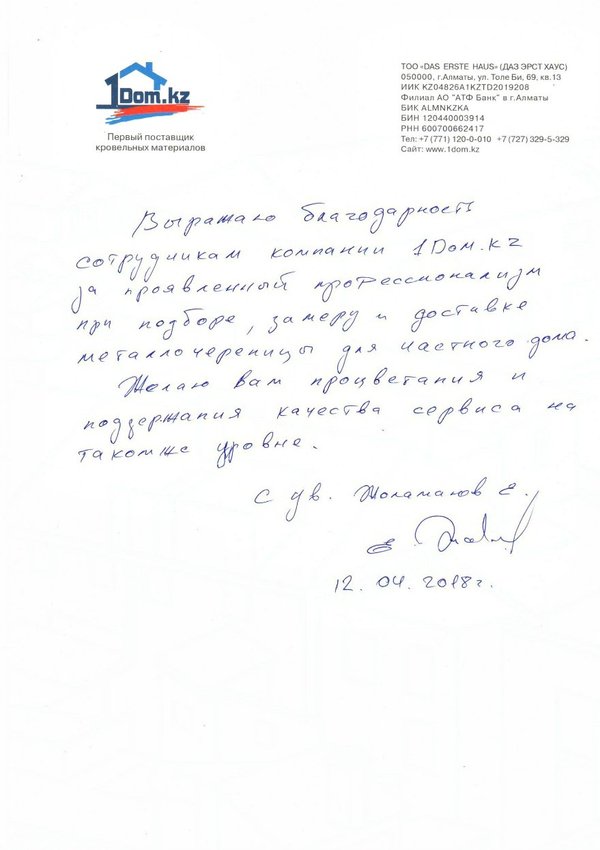 1Dom.kz
Первый поставщик
кровельных материалов
ТОО «DAS ERSTE HAUS» (ДАЗ ЭРСТ ХАУС)
050000, г.Алматы, ул. Толе Би, 69, кв.13
ИИК KZ04826A1KZTD2019208
Филиал АО "АТФ Банк" в г.Алматы
БИК ALMNKZKA
БИН 120440003914
РНН 600700662417
Тел: +7 (771) 120-0-010 +7 (727) 329-5-329
Сайт: www.1dom.kz
Выражаю благодарность
сотрудникам компании 1Dom.kz
за проявленный профессионализм
при подборе, замеру и доставке
металлочереницы для частного дома.
Желаю Вам процветания и
поддержания качества сервиса на
такомже уровне.
С ув. Жоламанов Е.
12.04.2018г.